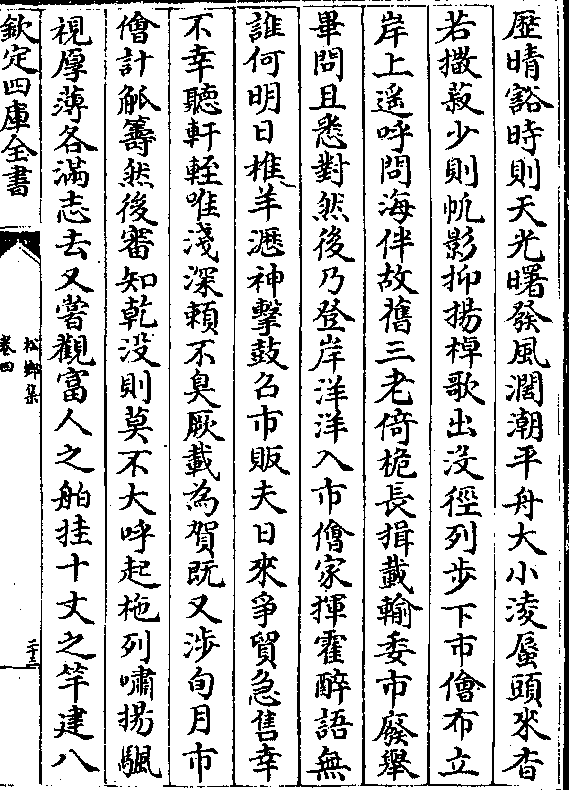 歴晴豁時則天光曙發風濶潮平舟大小淩蜃頭來杳
若撒蔌少則帆影抑揚棹歌出没徑列步下市儈布立
岸上遥呼問海伴故舊三老倚桅長揖載輸委市廢舉
畢問且悉對然後乃登岸洋洋入市儈家揮霍醉語無
誰何明日椎羊瀝神擊鼓召市販夫日來爭貿急售幸
不幸聽軒輊唯淺深頼不臭厥載為賀既又涉旬月市
儈計觚籌然後審知乾没則莫不大呼起柂列嘯揚颿
視厚薄各滿志去又嘗觀富人之舶挂十丈之竿建八
欽定四庫全書
松鄉集
卷四
二十三